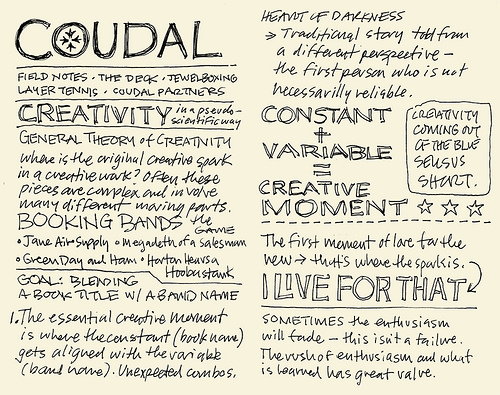 COUDAL
FIELD NOTES • THE DECK • JEWELBOXING
LAYER TENNIS • COUDAL PARTNERS
CREATIVITY in a pseudo-
scientific way
GENERAL THEORY OF CREATIVITY
where is the original creative spark
in a creative work? Often these
pieces are complex and involve
many different moving parts.
BOOKING BANDS the
GAME
• Jane Air Supply • megadeth of a salesman
• Green Day and Ham • Horton Hears a
Hoobastank
GOAL: BLENDING
A BOOK TITLE W/ A BAND NAME
1. The essential creative moment
is where the constant (book name)
gets aligned with the variable
(band name). Unexpected combos.
HEART OF DARKNESS
→ Traditional story told from
a different perspective –
the first person who is not
necessarilly reliable.
CONSTANT
+
VARIABLE
=
CREATIVE
MOMENT ☆☆☆
CREATIVITY
COMING OUT
OF THE BLUE
SENSUS
SHORT.
The first moment of love for the
new → that's where the spark is.
I LIVE FOR THAT
SOMETIMES the enthusiasm
will fade – this isn't a failure.
The rush of enthusiasm and what
is learned has great value.